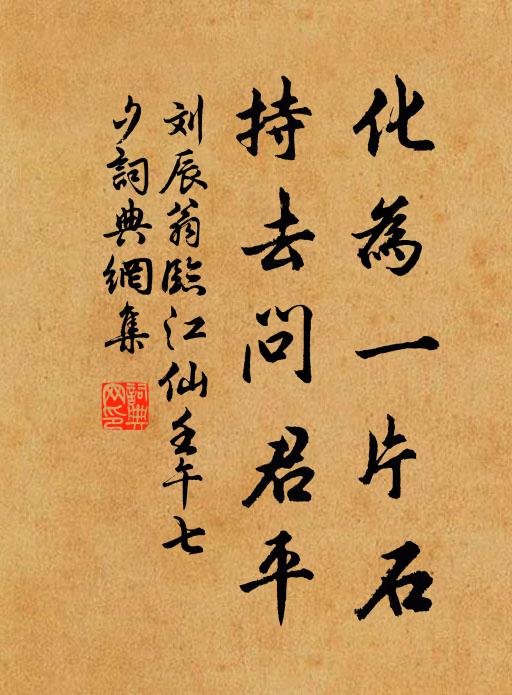 化為一片石
持去問君平
刘辰翁臨江仙壬午七
夕詞典網集
詞典網印